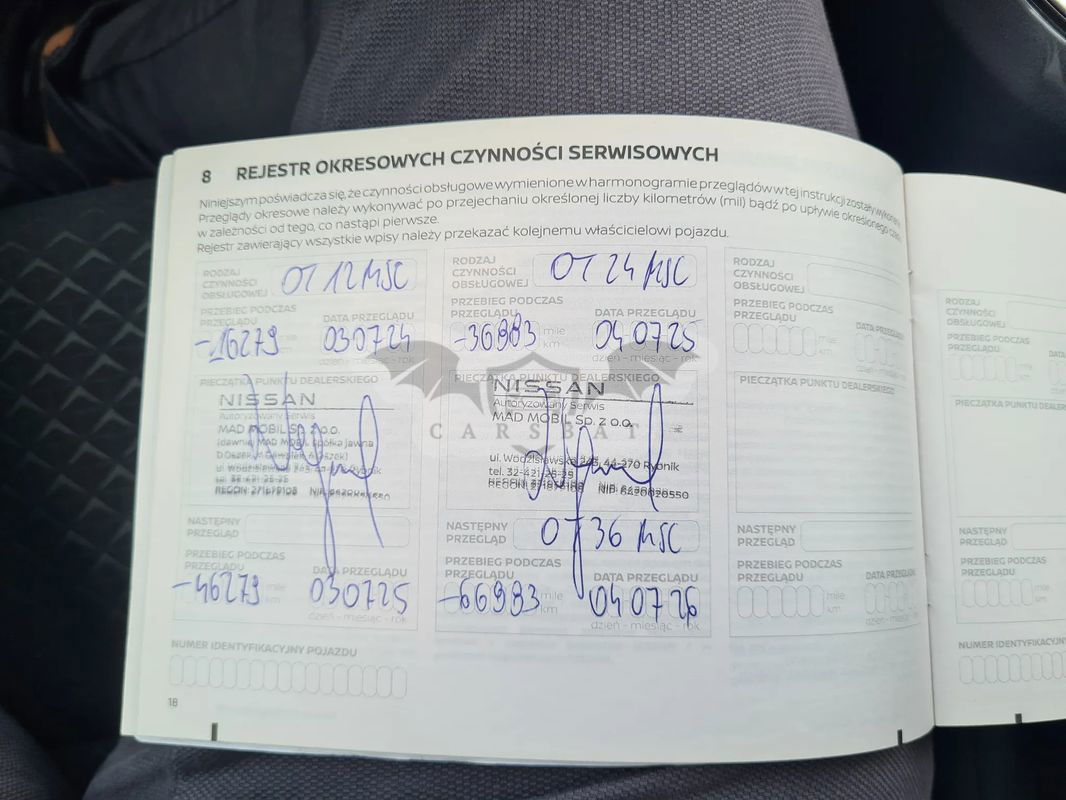 8 REJESTR OKRESOWYCH CZYNNOŚCI SERWISOWYCH
Niniejszym poświadcza się, że czynności obsługowe wymienione w harmonogramie przeglądów w tej instrukcji zostały wykonane
Przeglądy okresowe należy wykonywać po przejechaniu określonej liczby kilometrów (mil) bądź po upływie określonego
w zależności od tego, co nastąpi pierwsze.
Rejestr zawierający wszystkie wpisy należy przekazać kolejnemu właścicielowi pojazdu.
RODZAJ CZYNNOŚCI OBSŁUGOWEJ OT 12 MSC
PRZEBIEG PODCZAS PRZEGLĄDU DATA PRZEGLĄDU
-16279 mile km 030724
dzień - miesiąc - rok
PIECZĄTKA PUNKTU DEALERSKIEGO
NISSAN
Autoryzowany Serwis
MAD MOBIL Sp. z o.o.
(dawniej MAD MOBIL Spółka jawna
REGON: 271679108 NIP:
NASTĘPNY PRZEGLĄD
PRZEBIEG PODCZAS PRZEGLĄDU DATA PRZEGLĄDU
-46279 mile km 030725
dzień - miesiąc - rok
NUMER IDENTYFIKACYJNY POJAZDU
18
RODZAJ CZYNNOŚCI OBSŁUGOWEJ OT 24 MSC
PRZEBIEG PODCZAS PRZEGLĄDU DATA PRZEGLĄDU
-36983 mile km 040725
dzień - miesiąc - rok
PIECZĄTKA PUNKTU DEALERSKIEGO
NISSAN
Autoryzowany Serwis
MAD MOBIL Sp. z o.o.
CARSBAT
ul. Wodzisławska 243, 44-270 Rybnik
tel. 32-421-25-25
NIP: 6420020550
NASTĘPNY PRZEGLĄD OT 36 MSC
PRZEBIEG PODCZAS PRZEGLĄDU DATA PRZEGLĄDU
-66983 mile km 040726
dzień - miesiąc - rok
RODZAJ CZYNNOŚCI OBSŁUGOWEJ
PRZEBIEG PODCZAS PRZEGLĄDU DATA PRZEGLĄDU
mile km
PIECZĄTKA PUNKTU DEALERSKIEGO
NASTĘPNY PRZEGLĄD
PRZEBIEG PODCZAS PRZEGLĄDU DATA PRZEGLĄDU
mile km
RODZAJ CZYNNOŚCI OBSŁUGOWEJ
PRZEBIEG PODCZAS PRZEGLĄDU
mile km
PIECZĄTKA PUNKTU
NASTĘPNY PRZEGLĄD
PRZEBIEG PODCZAS PRZEGLĄDU
mile km
NUMER IDENTYFIKACYJNY